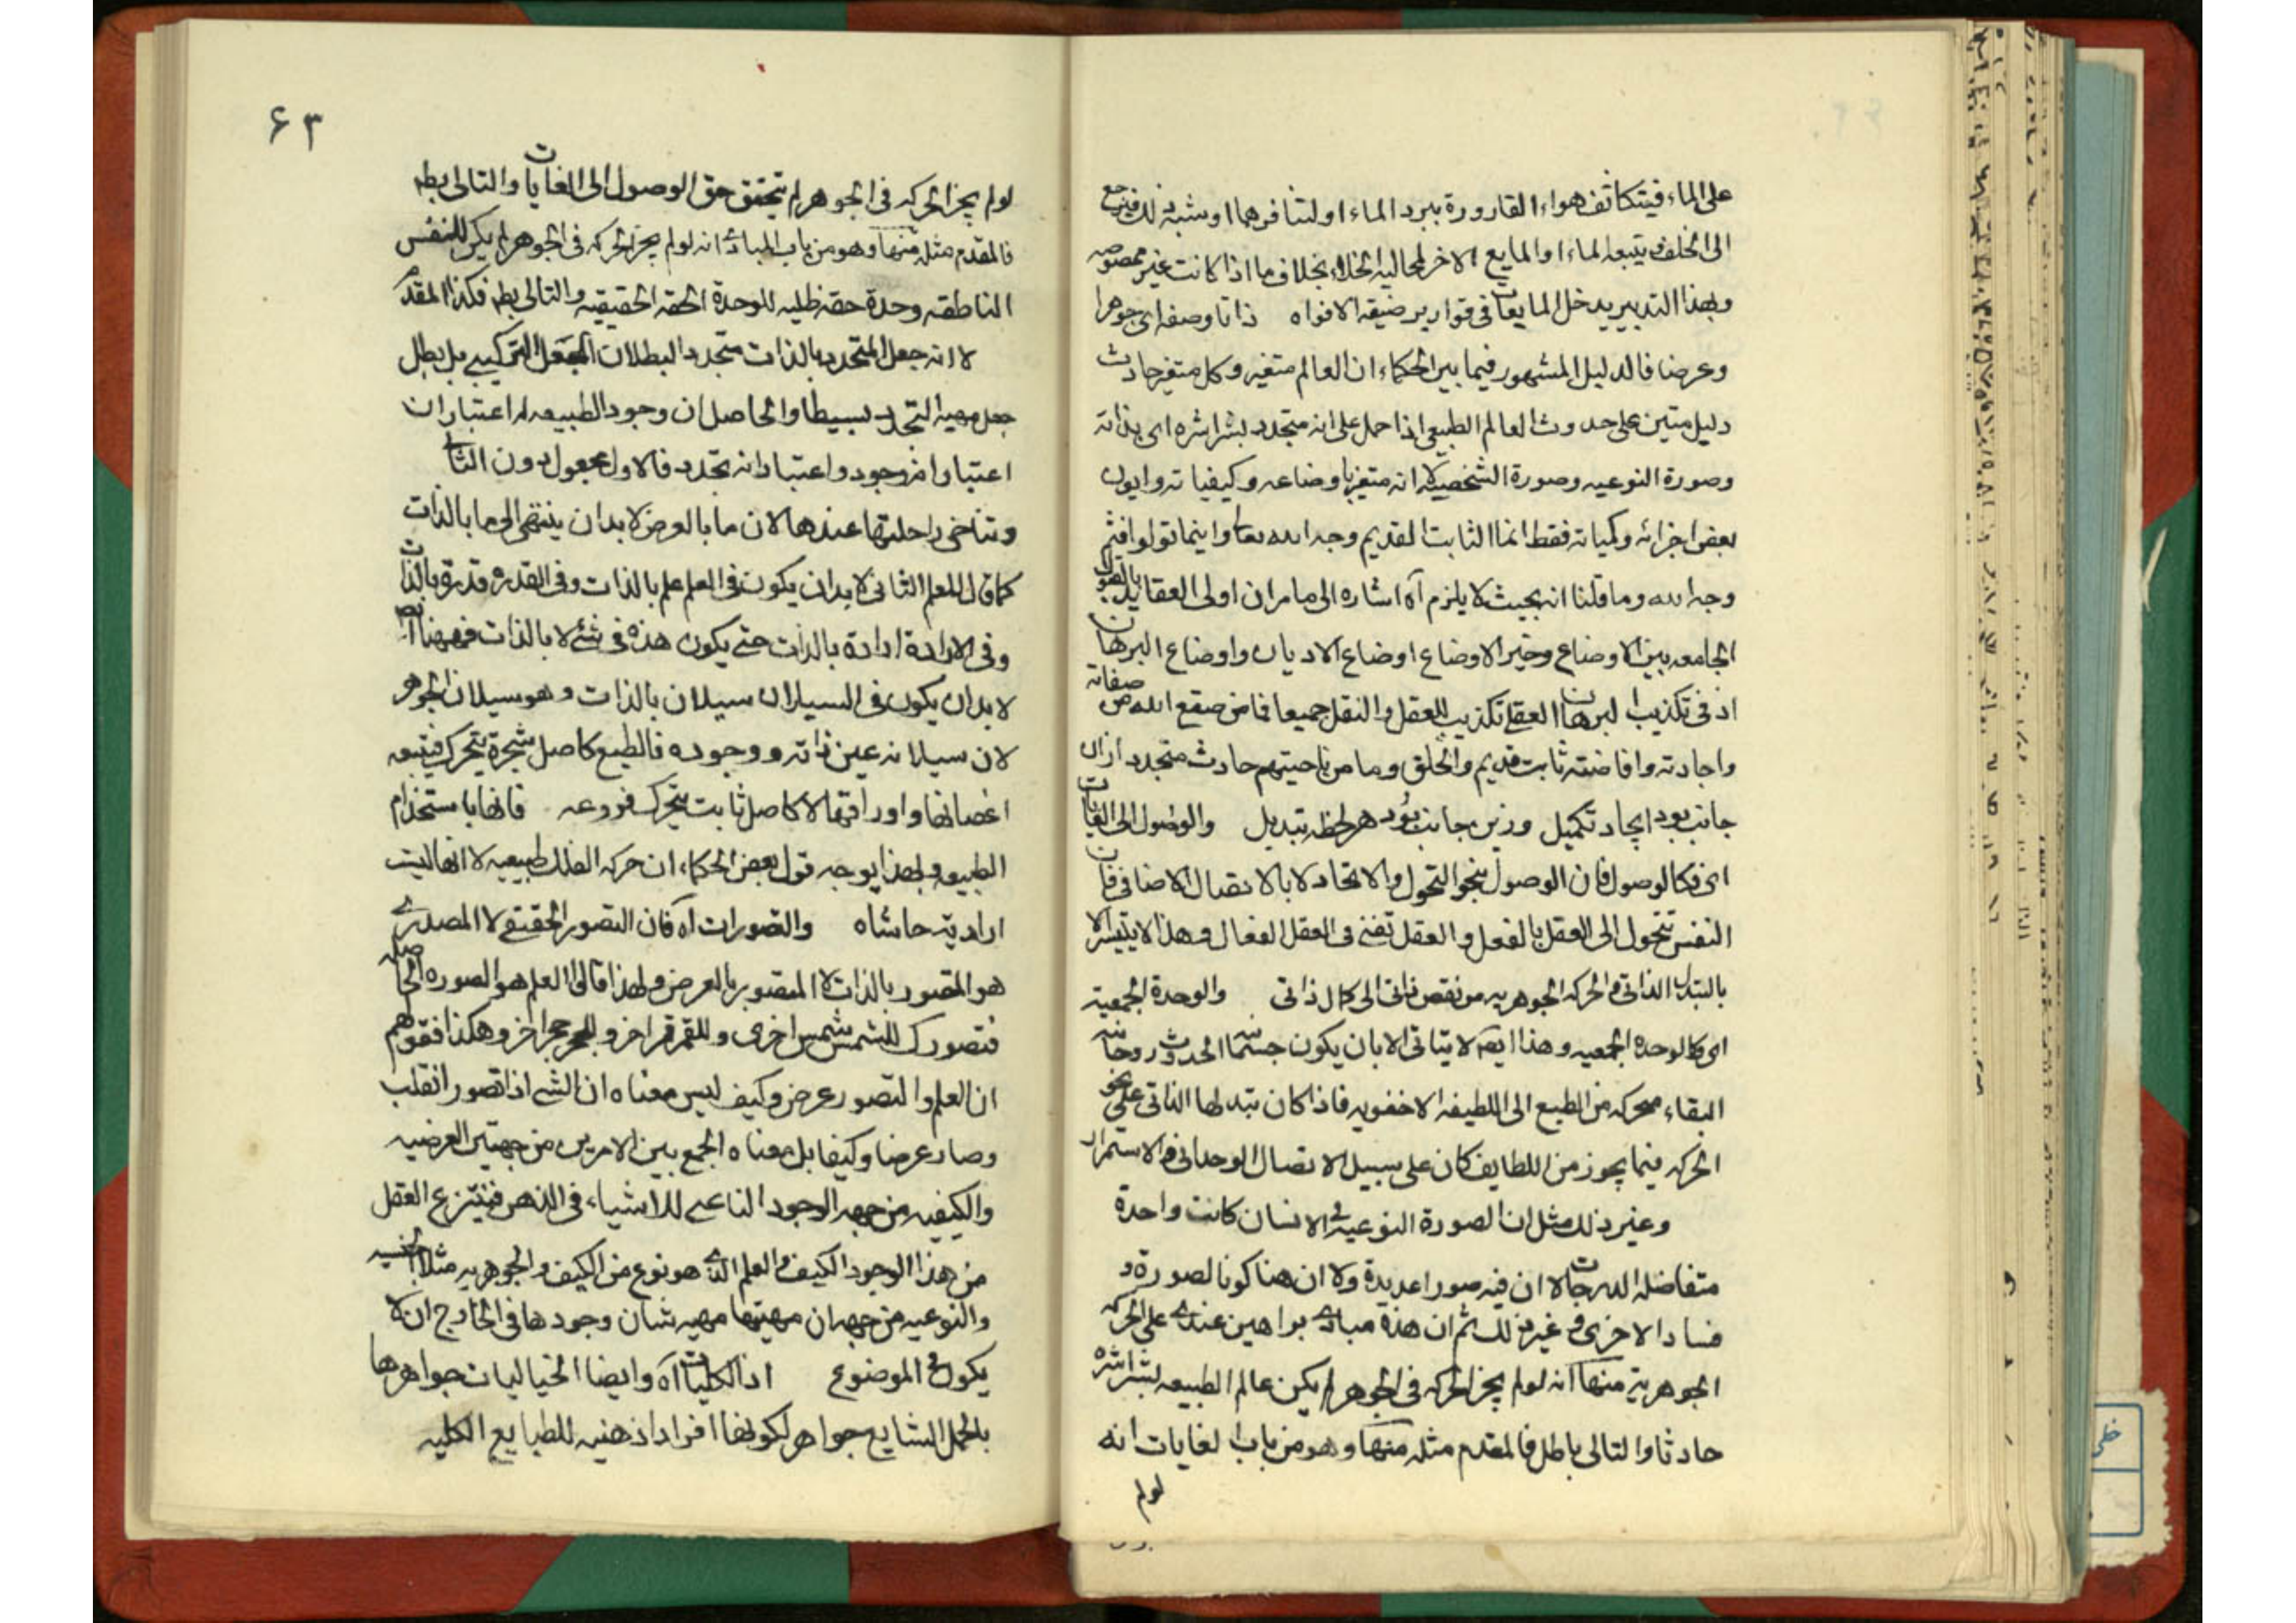 على الماء فيتكاثف هواء القارورة ببرد الماء او لتنافرهما او شبه ذلك فيرجع
الى الخلف و يتبعه الماء او المايع الاخر لمحالية الخلاء بخلاف ما اذا كانت غير ممصوصه
وبهذا التدبير يدخل المايعات فى قوارير ضيقة الافواه ذاتا وصفة اى جوهرا
وعرضا فالدليل المشهور فيما بين الحكماء ان العالم متغير وكل متغير حادث
دليل متين على حدوث العالم الطبيعى اذا حمل على انه متجدد بشراشره اى بذاته
وصورة النوعيه وصورة الشخصية لا انه متغير باوضاعه وكيفياته وايون
بعض اجزائه وكمياته فقط انما الثابت القديم وجه الله تعا واينما تولوا فثم
وجه الله وما قلنا انه بحيث لا يلزم آه اشاره الى ما مر ان اولى العقايد بالقبول
الجامعه بين الاوضاع وخير الاوضاع اوضاع الاديان واوضاع البرهان
اذ فى تكذيب البرهان العقلى تكذيب للعقل والنقل جميعا فما من صقع الله من صفاته
واجادته وافاضته ثابت قديم والخلق وما من ناحيتهم حادث متجدد ازان
جانب بود ايجاد تكميل وزين جانب بود هر لحظه تبديل والوصول الى الغايات
اى فكالوصول فان الوصول بنحو التحول والاتحاد لا بالاتصال الاضافى فان
النفس تتحول الى العقل بالفعل والعقل تفنى فى العقل الفعال وهذا لا يتيسر الا
بالتبدل الذاتى والحركه الجوهريه من نقص ذاتى الى كمال ذاتى والوحدة الجمعية
اى كالوحده الجمعيه وهذا ايضا لا يتاتى الا بان يكون جسمانية الحدوث روحانية
البقاء متحركه من الطبع الى اللطيفه الاخفويه فاذا كان تبدلها الذاتى على نحو
الحركه فيما يجوز من اللطايف كان على سبيل الاتصال الوحدانى والاستمرار
وغير ذلك مثل ان الصورة النوعية فى الانسان كانت واحدة
متفاضلة الدرجات لا ان فيه صورا عديدة ولا ان هنا كونا لصورة و
فسادا لاخرى و غير ذلك ثم ان هذه مبادى براهين عندى على الحركه
الجوهرية منها انه لو لم يجز الحركه فى الجوهر لم يكن عالم الطبيعه بشراشره
حادثا والتالى باطل فالمقدم مثله منها وهو من باب الغايات انه
لو لم
٦٣
لو لم يجز الحركه فى الجوهر لم يتحقق حق الوصول الى الغايات والتالى بط
فالمقدم مثله منها وهو من باب المبادى انه لو لم يجز الحركه فى الجوهر لم يكن للنفس
الناطقه وحدة حقه ظليه للوحدة الحقه الحقيقيه والتالى بط فكذا المقدم
لا انه جعل المتجدد بالذات متجدد البطلان الجعل التركيبى بل بطل
جعل مهية التجدد بسيطا والحاصل ان وجود الطبيعه له اعتباران
اعتبار انه وجود واعتبار انه تجدد فالاول مجعول دون الثانى
وتناخى راحلتها عندها لان ما بالعرض لا بدان ينتهى الى ما بالذات
كما قال المعلم الثانى لا بد ان يكون فى العلم علم بالذات وفى القدره قدرة بالذات
وفى الارادة ارادة بالذات حتى يكون هذه فى شئ لا بالذات فههنا ايض
لا بد ان يكون فى السيلان سيلان بالذات وهو سيلان الجوهر
لان سيلانه عين ذاته ووجوده فالطبع كاصل شجرة يتحرك فيتبعه
اغصانها واوراقها لا كاصل ثابت يتحرك فروعه فانها باستخدام
الطبيعه ولهذا يوجه قول بعض الحكماء ان حركه الفلك طبيعيه لا انها ليت
ارادية حاشاه والتصورات آه فان التصور الحقيقى لا المصدرى
هو المتصور بالذات لا المتصور بالعرض ولهذا قالوا العلم هو الصوره الحاصله
فتصورك للشمس شمس اخرى وللقمر قمر اخر وللحجر حجر اخر وهكذا فقولهم
ان العلم والتصور عرض وكيف ليس معناه ان الشئ اذا تصور انقلب
وصار عرضا وكيفا بل معناه الجمع بين الامرين من جهتين العرضيه
والكيفيه من جهه الوجود الناعى للاشياء فى الذهن فينتزع العقل
من هذا الوجود الكيف والعلم الذى هو نوع من الكيف والجوهريه مثلا الجنسيه
والنوعيه من جهه ان مهيتها مهيه شان وجودها فى الخارج ان لا
يكون فى الموضوع اذ الكليات آه وايضا الخياليات جواهرها
بالحمل الشايع جواهر لكونها افرادا ذهنيه للطبايع الكليه